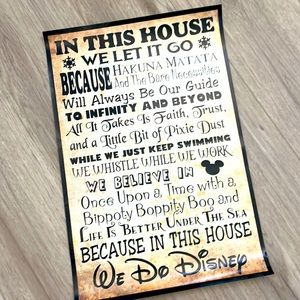 IN THIS HOUSE
WE LET IT GO
BECAUSE HAKUNA MATATA
And The Bare Necessities
Will Always Be Our Guide
TO INFINITY AND BEYOND
All It Takes Is Faith, Trust,
and a Little Bit of Pixie Dust
WHILE WE JUST KEEP SWIMMING
WE WHISTLE WHILE WE WORK
WE BELIEVE IN
Once Upon a Time with a
Bippoty Boppity Boo and
LIFE IS BETTER UNDER THE SEA
BECAUSE IN THIS HOUSE
WE DO DISNEY